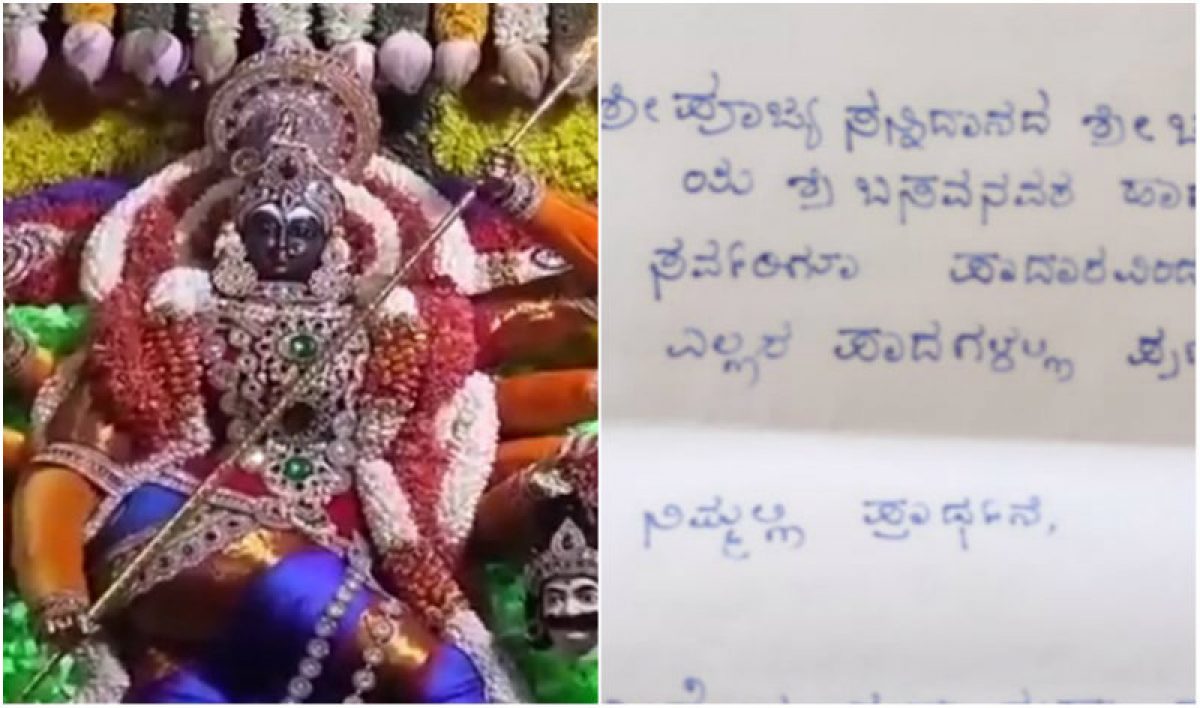 ಶ್ರೀ ಪೂಜ್ಯ ಸನ್ನಿದಾನದ ಶ್ರೀ
ಯ ಶ್ರೀ ಬಸವನವರ ಪಾದ
ಸರ್ವರಿಗೂ ಪಾದಾರವಿಂದ
ಎಲ್ಲರ ಪಾದಗಳಲ್ಲಿ
ನಿಮ್ಮಲ್ಲಿ ಪ್ರಾರ್ಥನೆ,